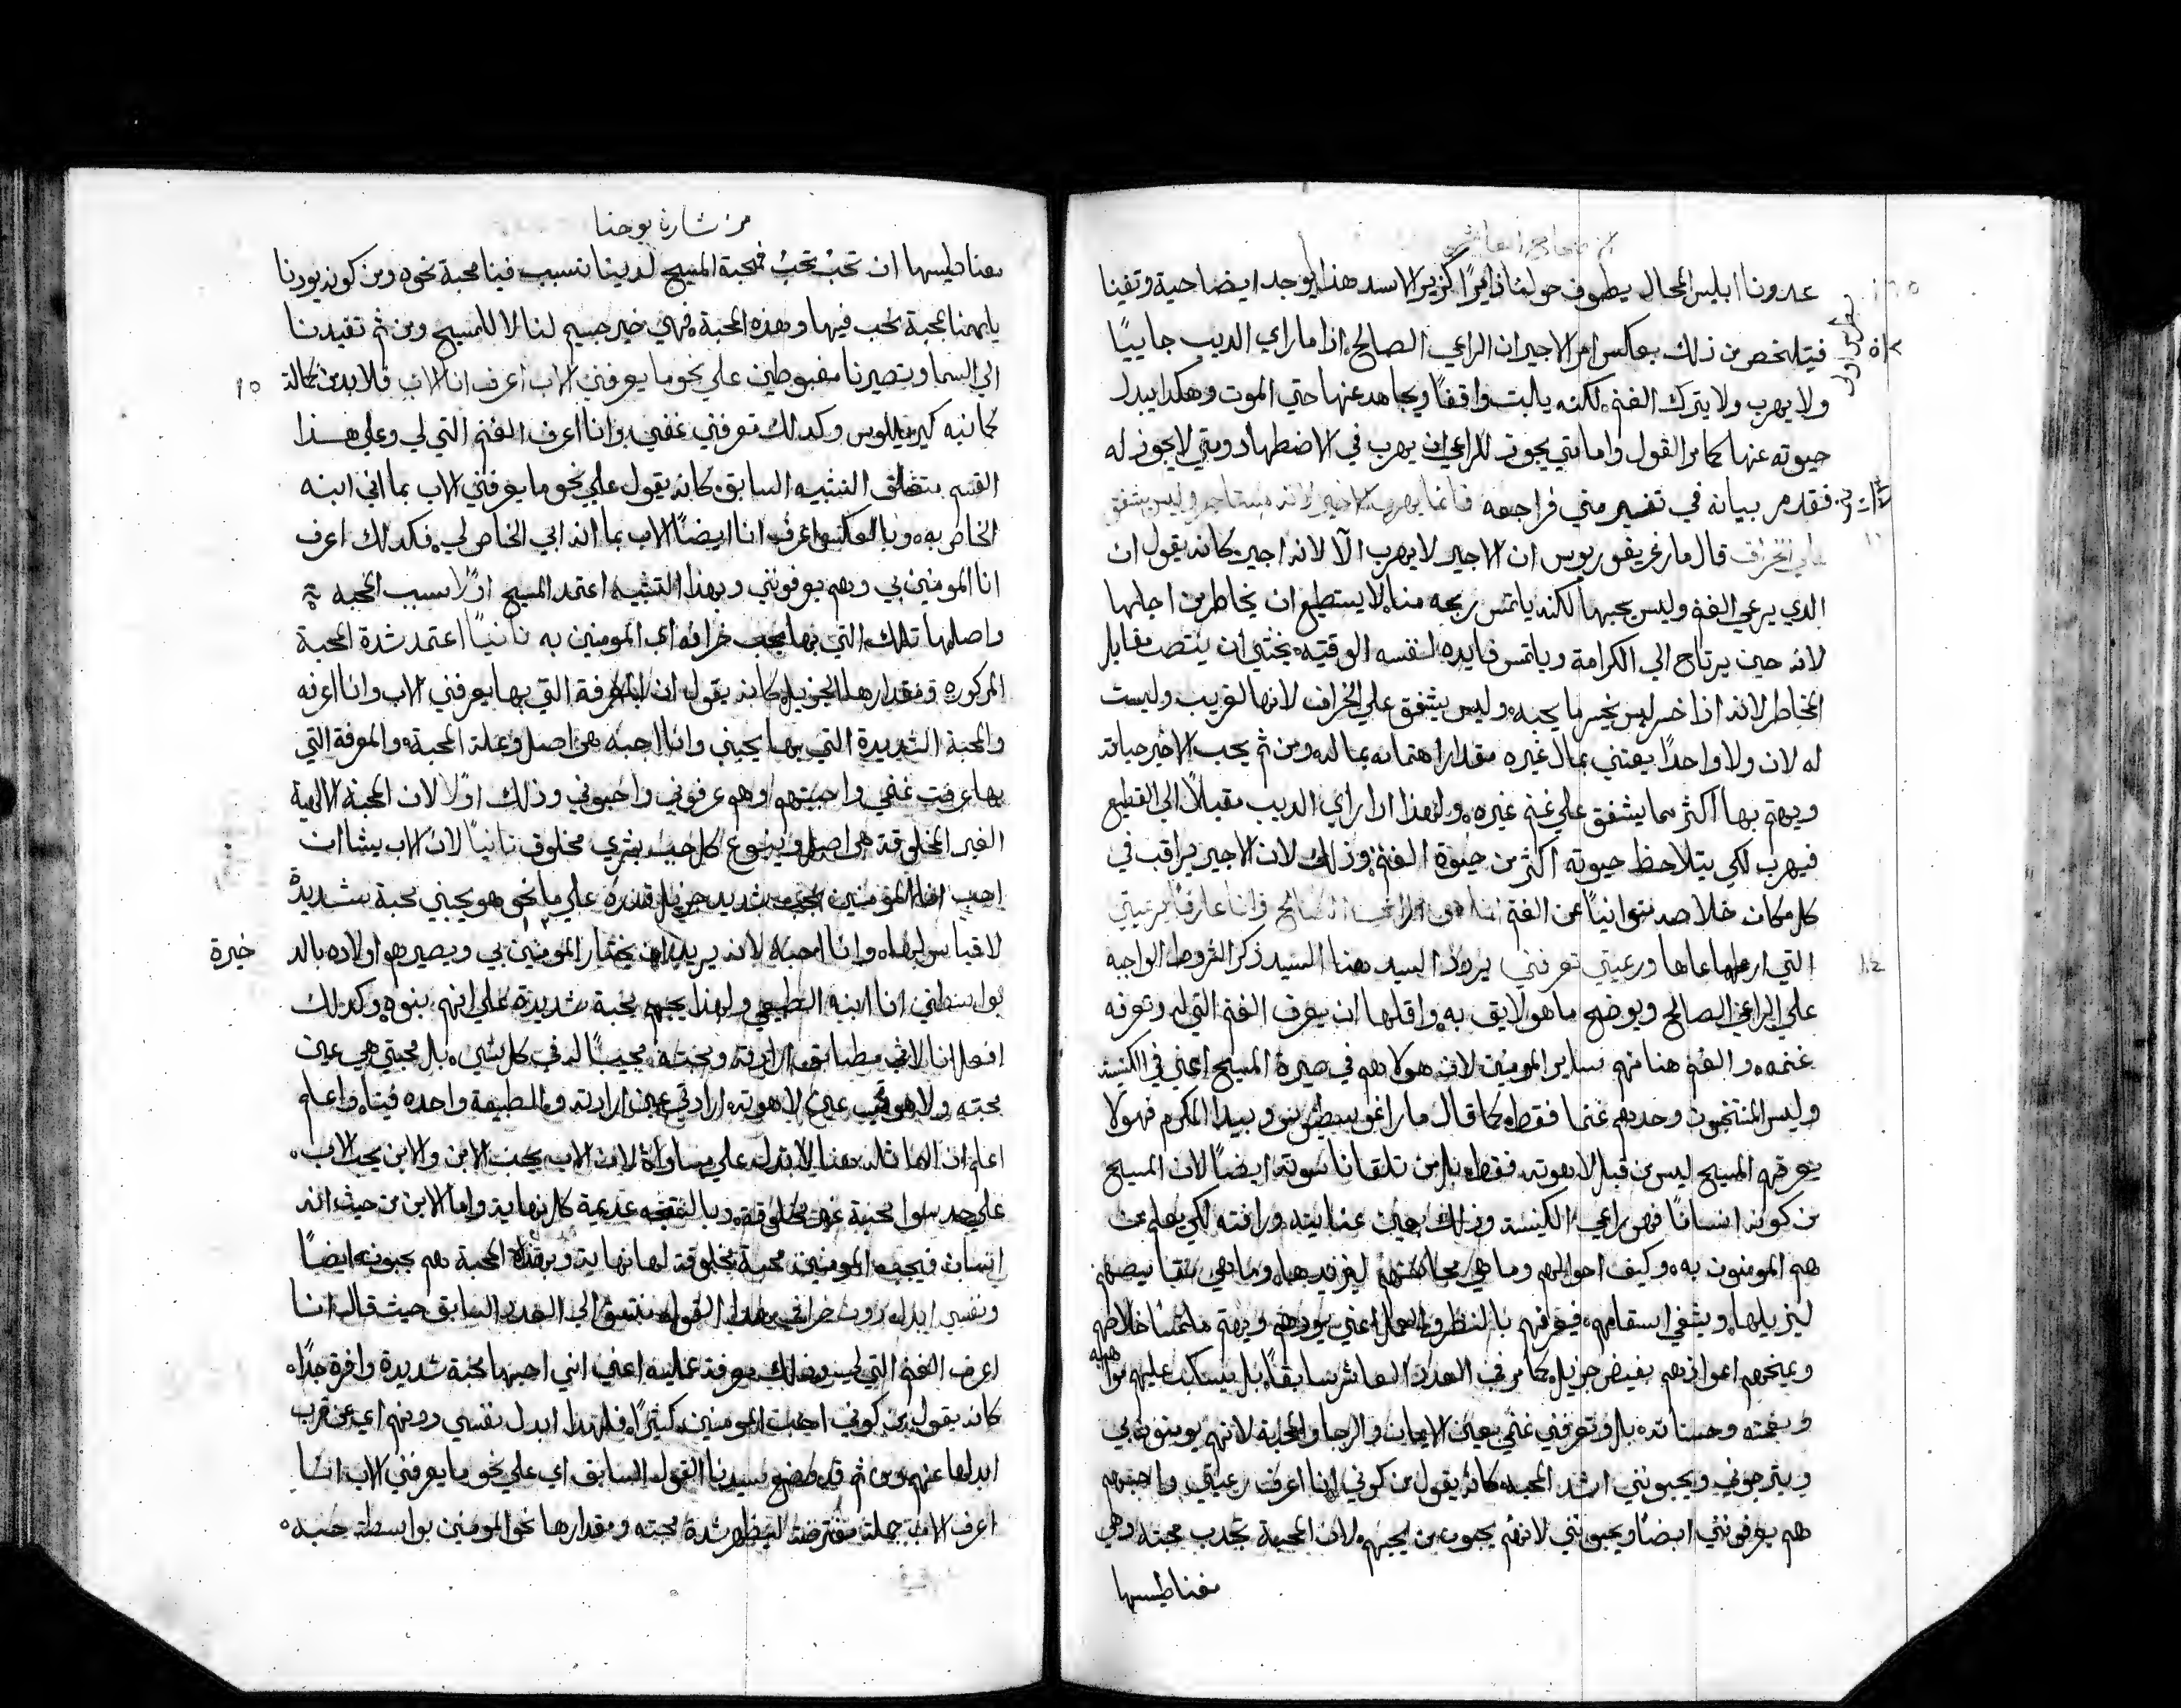 الاصحاح العاشر
عدونا ابليس المحال يطوف حولنا زايرًا كزير الاسد هذا يوجد ايضا حية وتفينا
فيتلخص من ذلك بعكس امر الاجير ان الراعي الصالح اذا ما راي الديب جاييًا
ولا يهرب ولا يترك الغنم لكنه يلبت واقفًا ويجاهد عنها حتي الموت وهكدا يبدل
حيوته عنها كما مر القول واما متي يجوز للراعي ان يهرب في الاضطهاد ومتي لا يجوز له
فقد مر بيانه في تفسير متي فراجعه فانما يهرب الاجير لانه مستاجر وليس يشفق
علي الخراف قال مار غريغوريوس ان الاجير لا يهرب الّا لانه اجير كانه يقول ان
الدي يرعي الغنم وليس يحبها لكنه يلتمس ربحه منها لا يستطيع ان يخاطر من اجلها
لانه حين يرتاح الي الكرامة ويلتمس فايده لنفسه الوقتيه يخشي ان ينتصت مقابل
المخاطر لانه اذا خسر ليس يخسر ما يحبه وليس يشفق علي الخراف لانها لغريب وليست
له لان ولا واحدًا يعتني بمال غيره مقدار اهتمامه بماله ومن ثم يحب الاجير حياته
ويهتم بها اكثر مما يشفق علي غنم غيره ولهذا ادا راي الديب مقبلًا الي القطيع
فيهرب لكي يتلاحظ حيوته اكثر من حيوة الغنم وذلك لان الاجير يراقب في
كل مكان خلاصه متوانيًا عن الغنم انا هو الراعي الصالح وانا عارف برعيتي
١٤ التي ارعاها ورعيتي تعرفني يورد السيد هنا السيد ذكر الشروط الواجبه
علي الراعي الصالح ويوضح ما هو لايق به واقلها ان يعرف الغنم التي له وتعرفه
غنمه والغنم هنا هم ساير المومنين لان هولا هم في صيرة المسيح اعني في الكنيسة
وليس المنتخبون وحدهم غنما فقط كما قال مار اغوسطينوس وبيدا المكرم فهولا
يعرفهم المسيح ليس من قبل لاهوته فقط بل من تلقا ناسوته ايضًا لان المسيح
من كونه انسانًا فهو راعي الكنيسة وذلك بعين عنايته ورافته لكي يعلم من
هم المومنون به وكيف احوالهم وما هي محامدهم ليزيدها وما هي نقايصهم
ليزيلها ويشفي اسقامهم فيعرفهم بالنظر والعمل اعني يودهم ويهتم ملتمسًا خلاصهم
ويمنحهم اعوازهم بفيض جزيل كما مر في العدد العاشر سابقًا بل يسكب عليهم مواهبه
ونعمته وحسناته بل وتعرفني غنمي بعين الايمان والرجا والمحبة لانهم يومنون بي
ويترجوني ويحبونني اشد المحبه كانه يقول من كوني انا اعرف رعيتي واحبهم
هم يعرفونني ايضًا ويحبونني لانهم يحبون من يحبهم لان المحبة تجدب محبته وهي
مغناطيسها
من بشارة يوحنا
مغناطيسها ان تحبّ تحبُ فمحبة المسيح لدينا تتسبب فينا محبة نحوه ومن كونه يودنا
يلهمنا بمحبة نحب فيها وهذه المحبة فهي خير جسيم لنا لا للمسيح ومن ثم تقيدنا
١٥ الي السما وتصيرنا مغبوطين علي نحو ما يعرفني الاب اعرف انا الاب فلا بد من كمالة
كمانبه كيريللوس وكدالك تعرفني غنمي وانا اعرف الغنم التي لي وعلي هـذا
القسم يتعلق التشبيه السابق كانه يقول علي نحو ما يعرفني الاب بما اني ابنه
الخاص به وبالعكس اعرف انا ايضًا الاب بما انه ابي الخاص لي فكدلك اعرف
انا المومنين بي وهم يعرفونني وبهذا التشبيه اعتمد المسيح اولًا سبب المحبه
واصلها تلك التي بها يحب خرافه اي المومنين به ثانيًا اعتمد شدة المحبة
المدكوره ومقدارها الجزيل كانه يقول ان المعرفة التي بها يعرفني الاب وانا اعرفه
والمحبة الشديدة التي بها يحبني وانا احبه هي اصل وعلة المحبة والمعرفة التي
بها عرفت غنمي واحببتهم وهم عرفوني واحبوني وذلك اولًا لان المحبة الالهية
الغير المخلوقة هي اصل وينبوع كل حب بشري مخلوق ثانيًا لان الاب يشا ان
احب انا المومنين بحب شديد جزيل قدره علي ما نحو هو يحبني محبة شديدةً
لا قياس لها وانا احبه لانه يريد ان يختار المومنين بي ويصيرهم اولاده بالد خيرة
بواسطتي انا ابنه الطبيعي ولهذا يحبهم بمحبة شديدة علي انهم بنوه وكدلك
افعل انا لاني مطابق ارادته ومحبته مجيبًا له في كل شي بل محبتي هي عين
محبته ولاهوتي عين لاهوته ارادتي عين ارادته والطبيعة واحده فينا واعلم
اعلم ان المماثله هنا لا تدل علي مساواة لان الاب يحب الابن والابن يحب الاب
علي حد سوا محبة غير مخلوقة وبالنتيجه عديمة كل نهاية واما الابن من حيث انه
انسان فيحب المومنين محبة مخلوقة لها نهاية وبهذه المحبة هم يحبونه ايضًا
ونفسي ابدل دون خرافي هدا القول ينسق الي العدد السابق حيث قال انا
اعرف الغنم التي لي وذلك معرفة عملية اعني اني احبها محبة شديدة وافرة جدًا
كانه يقول من كوني احب المومنين كثيرًا فلهذا ابدل نفسي دونهم اي عن قرب
ابدلها عنهم ومن ثم قد وضع سيدنا القول السابق اي علي نحو ما يعرفني الاب انا
اعرف الاب جملة مفترضة ليظهر شدة محبته ومقدارها نحو المومنين بواسطة حبه